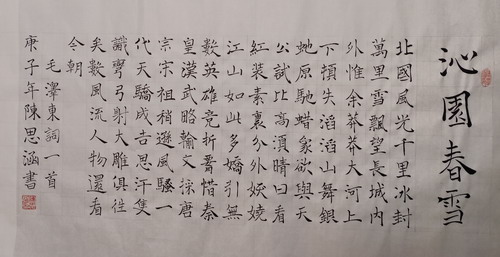 沁園春雪
北國風光千里冰封
萬里雪飄望長城內
外惟余莽莽大河上
下頓失滔滔山舞銀
蛇原馳蜡象欲與天
公試比高須晴日看
紅装素裹分外妖嬈
江山如此多嬌引無
數英雄竞折腰惜秦
皇漢武略輸文採唐
宗宋祖稍遜風騷一
代天驕成吉思汗隻
識彎弓射大雕俱往
矣數風流人物還看
今朝
毛澤東詞一首
庚子年陳思涵書